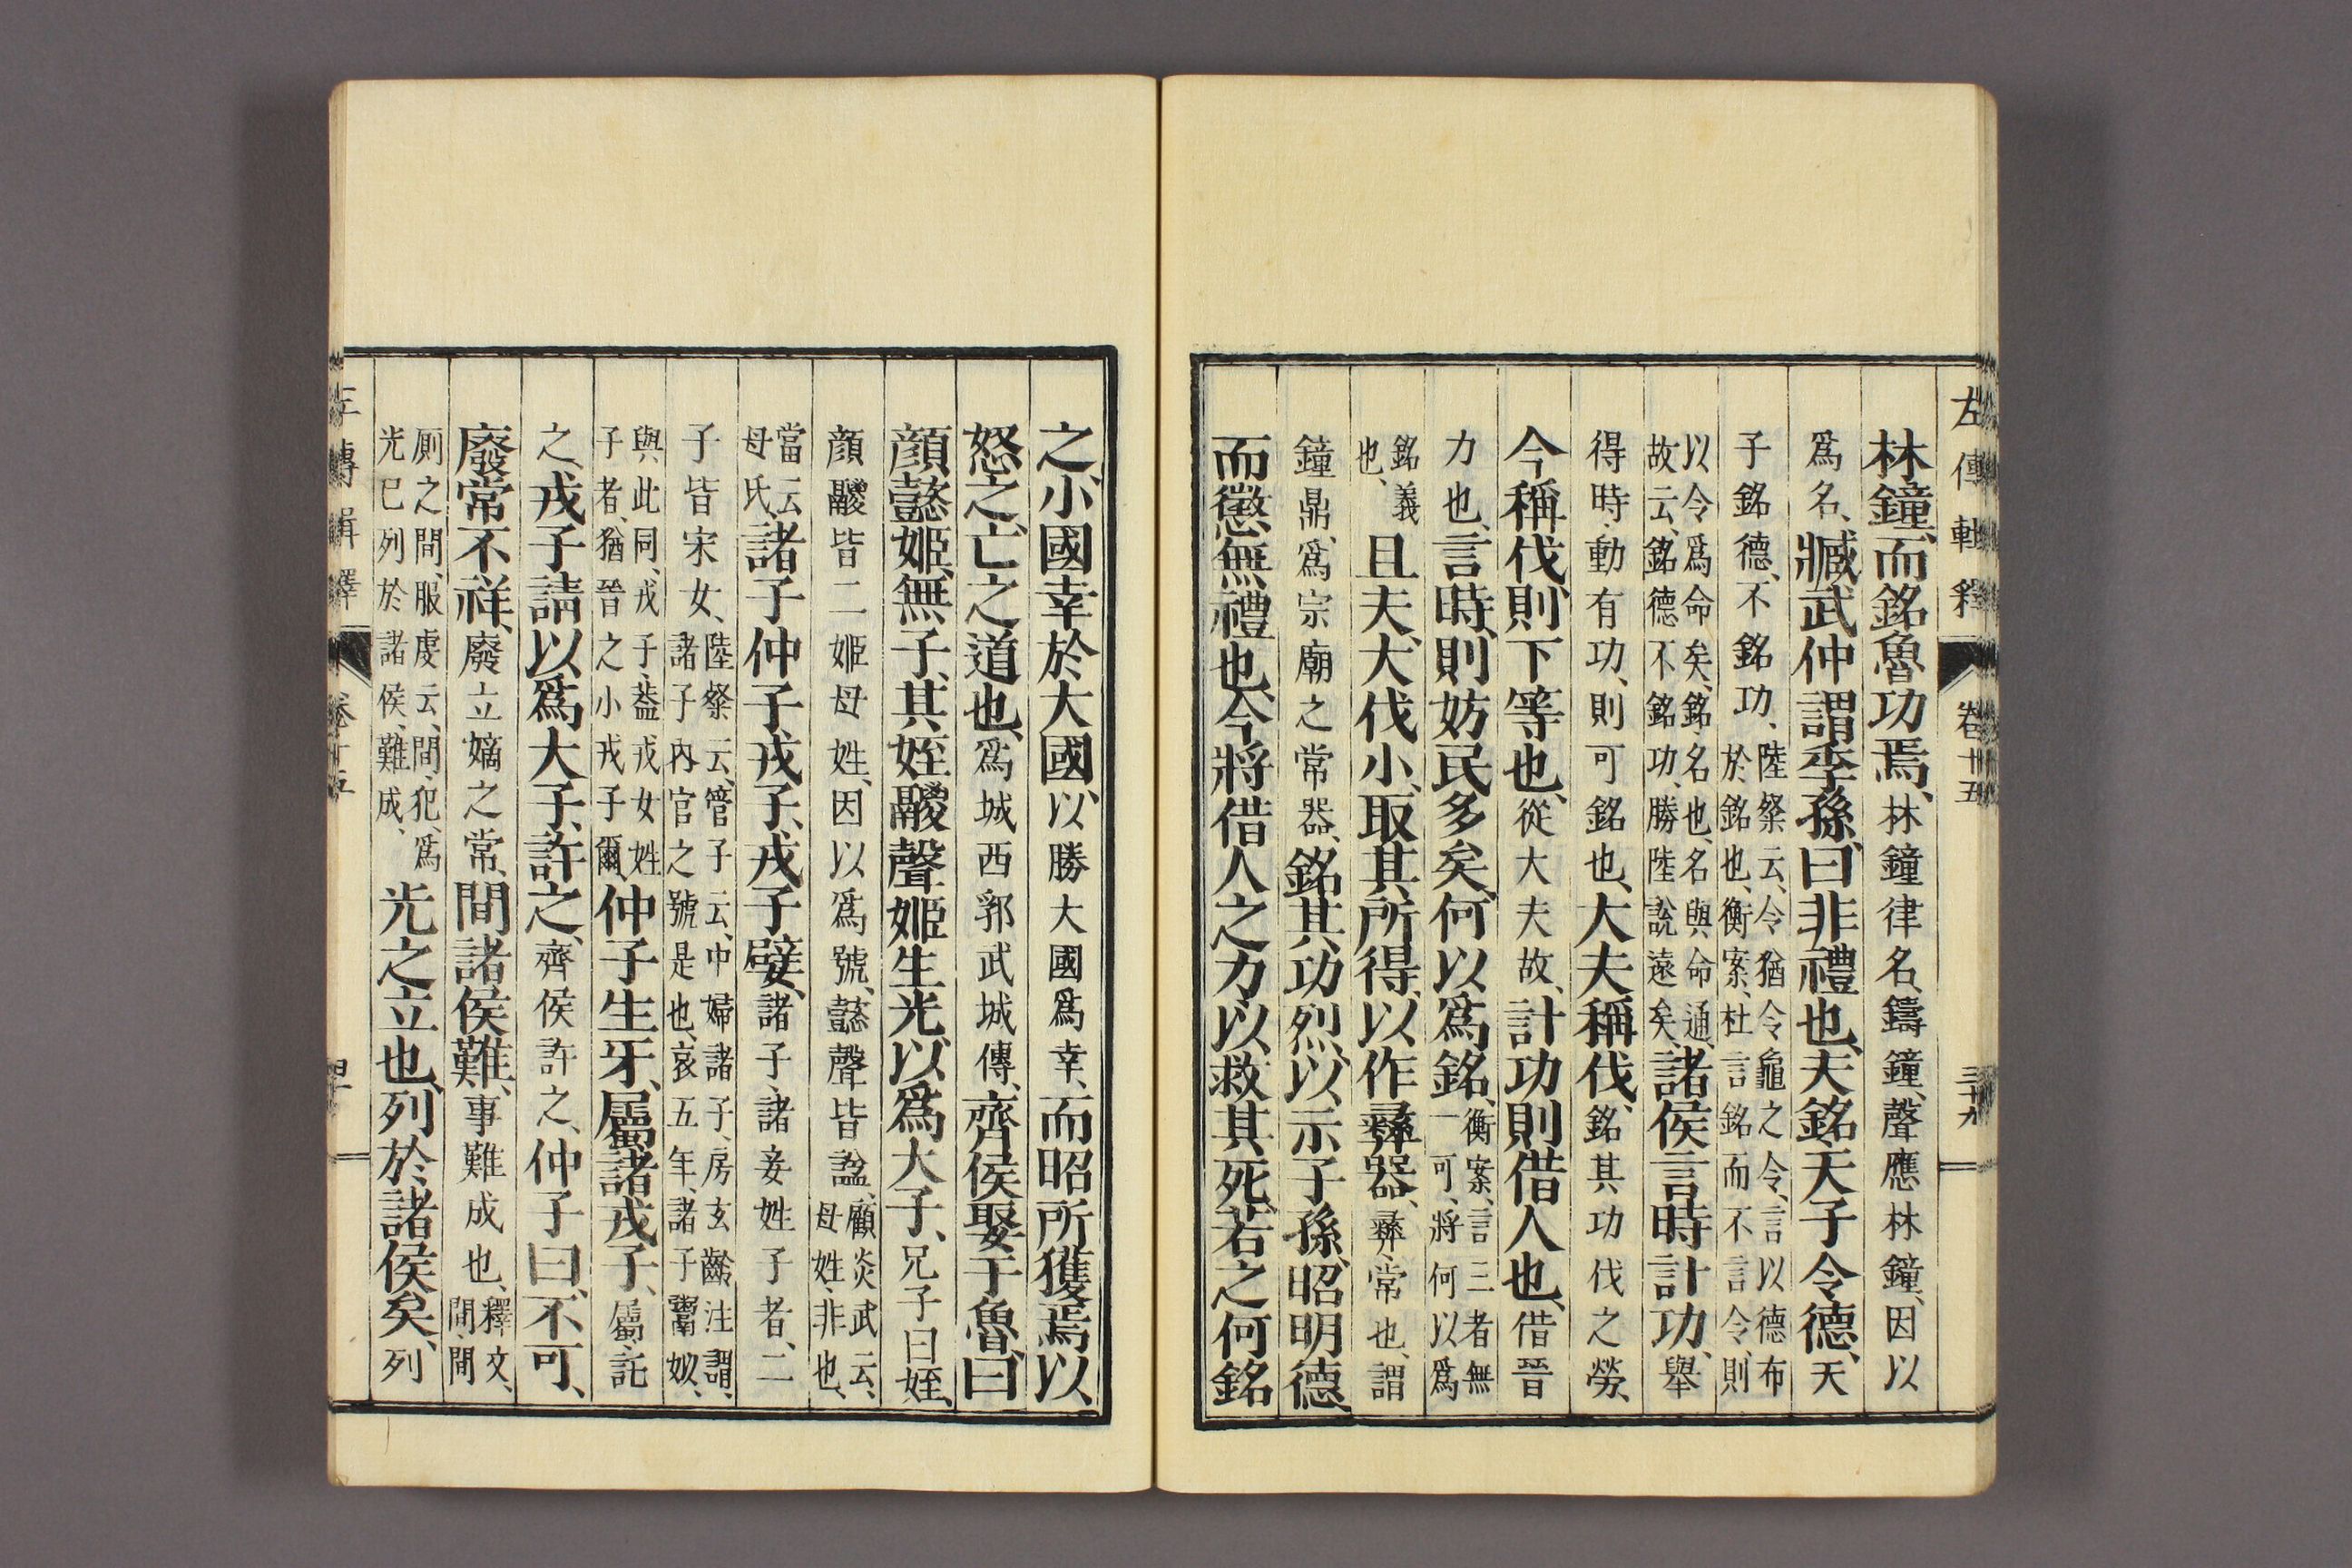 左傳輯釋 卷十五 三十九
林鐘、而銘魯功焉、林鐘律名、鑄鐘、聲應林鐘、因以
爲名、臧武仲謂季孫曰、非禮也、夫銘、天子令德、天
子銘德、不銘功、陸粲云、令猶令龜之令、言以德布
於銘也、衡案、杜言銘而不言令、則
以令爲命矣、銘、名也、名與命通、
故云、銘德不銘功、勝陸說遠矣、諸侯言時計功、舉
得時、動有功、則可銘也、大夫稱伐、銘其功伐之勞、
今稱伐、則下等也、從大夫故、計功則借人也、借晉
力也、言時、則妨民多矣、何以爲銘、衡案、言三者無
一可、將何以爲
銘義
也、且夫大伐小、取其所得、以作彝器、彝、常也、謂
鐘鼎、爲宗廟之常器、銘其功烈、以示子孫、昭明德、
而懲無禮也、今將借人之力、以救其死、若之何銘
之、小國幸於大國、以勝大國爲幸、而昭所獲焉以、
怒之、亡之道也、爲城西郛武城傳、齊侯娶于魯、曰
顏懿姬、無子、其姪鬷聲姬生光、以爲大子、兄子曰姪、
顏鬷皆二姬母姓、因以爲號、懿聲皆諡、顧炎武云、
母姓、非也、
當云
母氏、諸子仲子戎子、戎子嬖、諸子、諸妾姓子者、二
子皆宋女、陸粲云、管子云、中婦諸子、房玄齡注謂、
諸子內官之號是也、哀五年、諸子鬻姒、
與此同、戎子、蓋戎女姓
子者、猶晉之小戎子爾、仲子生牙、屬諸戎子、屬、託
之、戎子請以爲大子、許之、齊侯許之、仲子曰、不可、
廢常不祥、廢立嫡之常、間諸侯難、事難成也、釋文、
間、閒
厠之間、服虔云、間、犯、爲
光已列於諸侯、難成、光之立也、列於諸侯矣、列
左傳輯釋 卷十五 四十